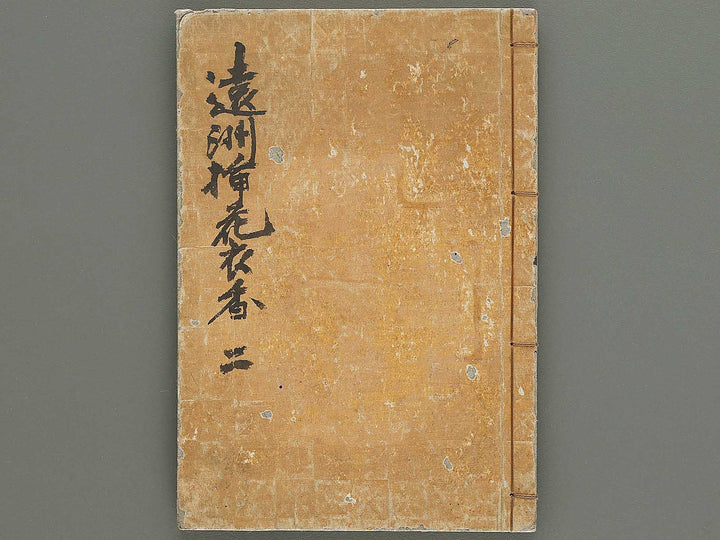 遠洲挿花衣香 二